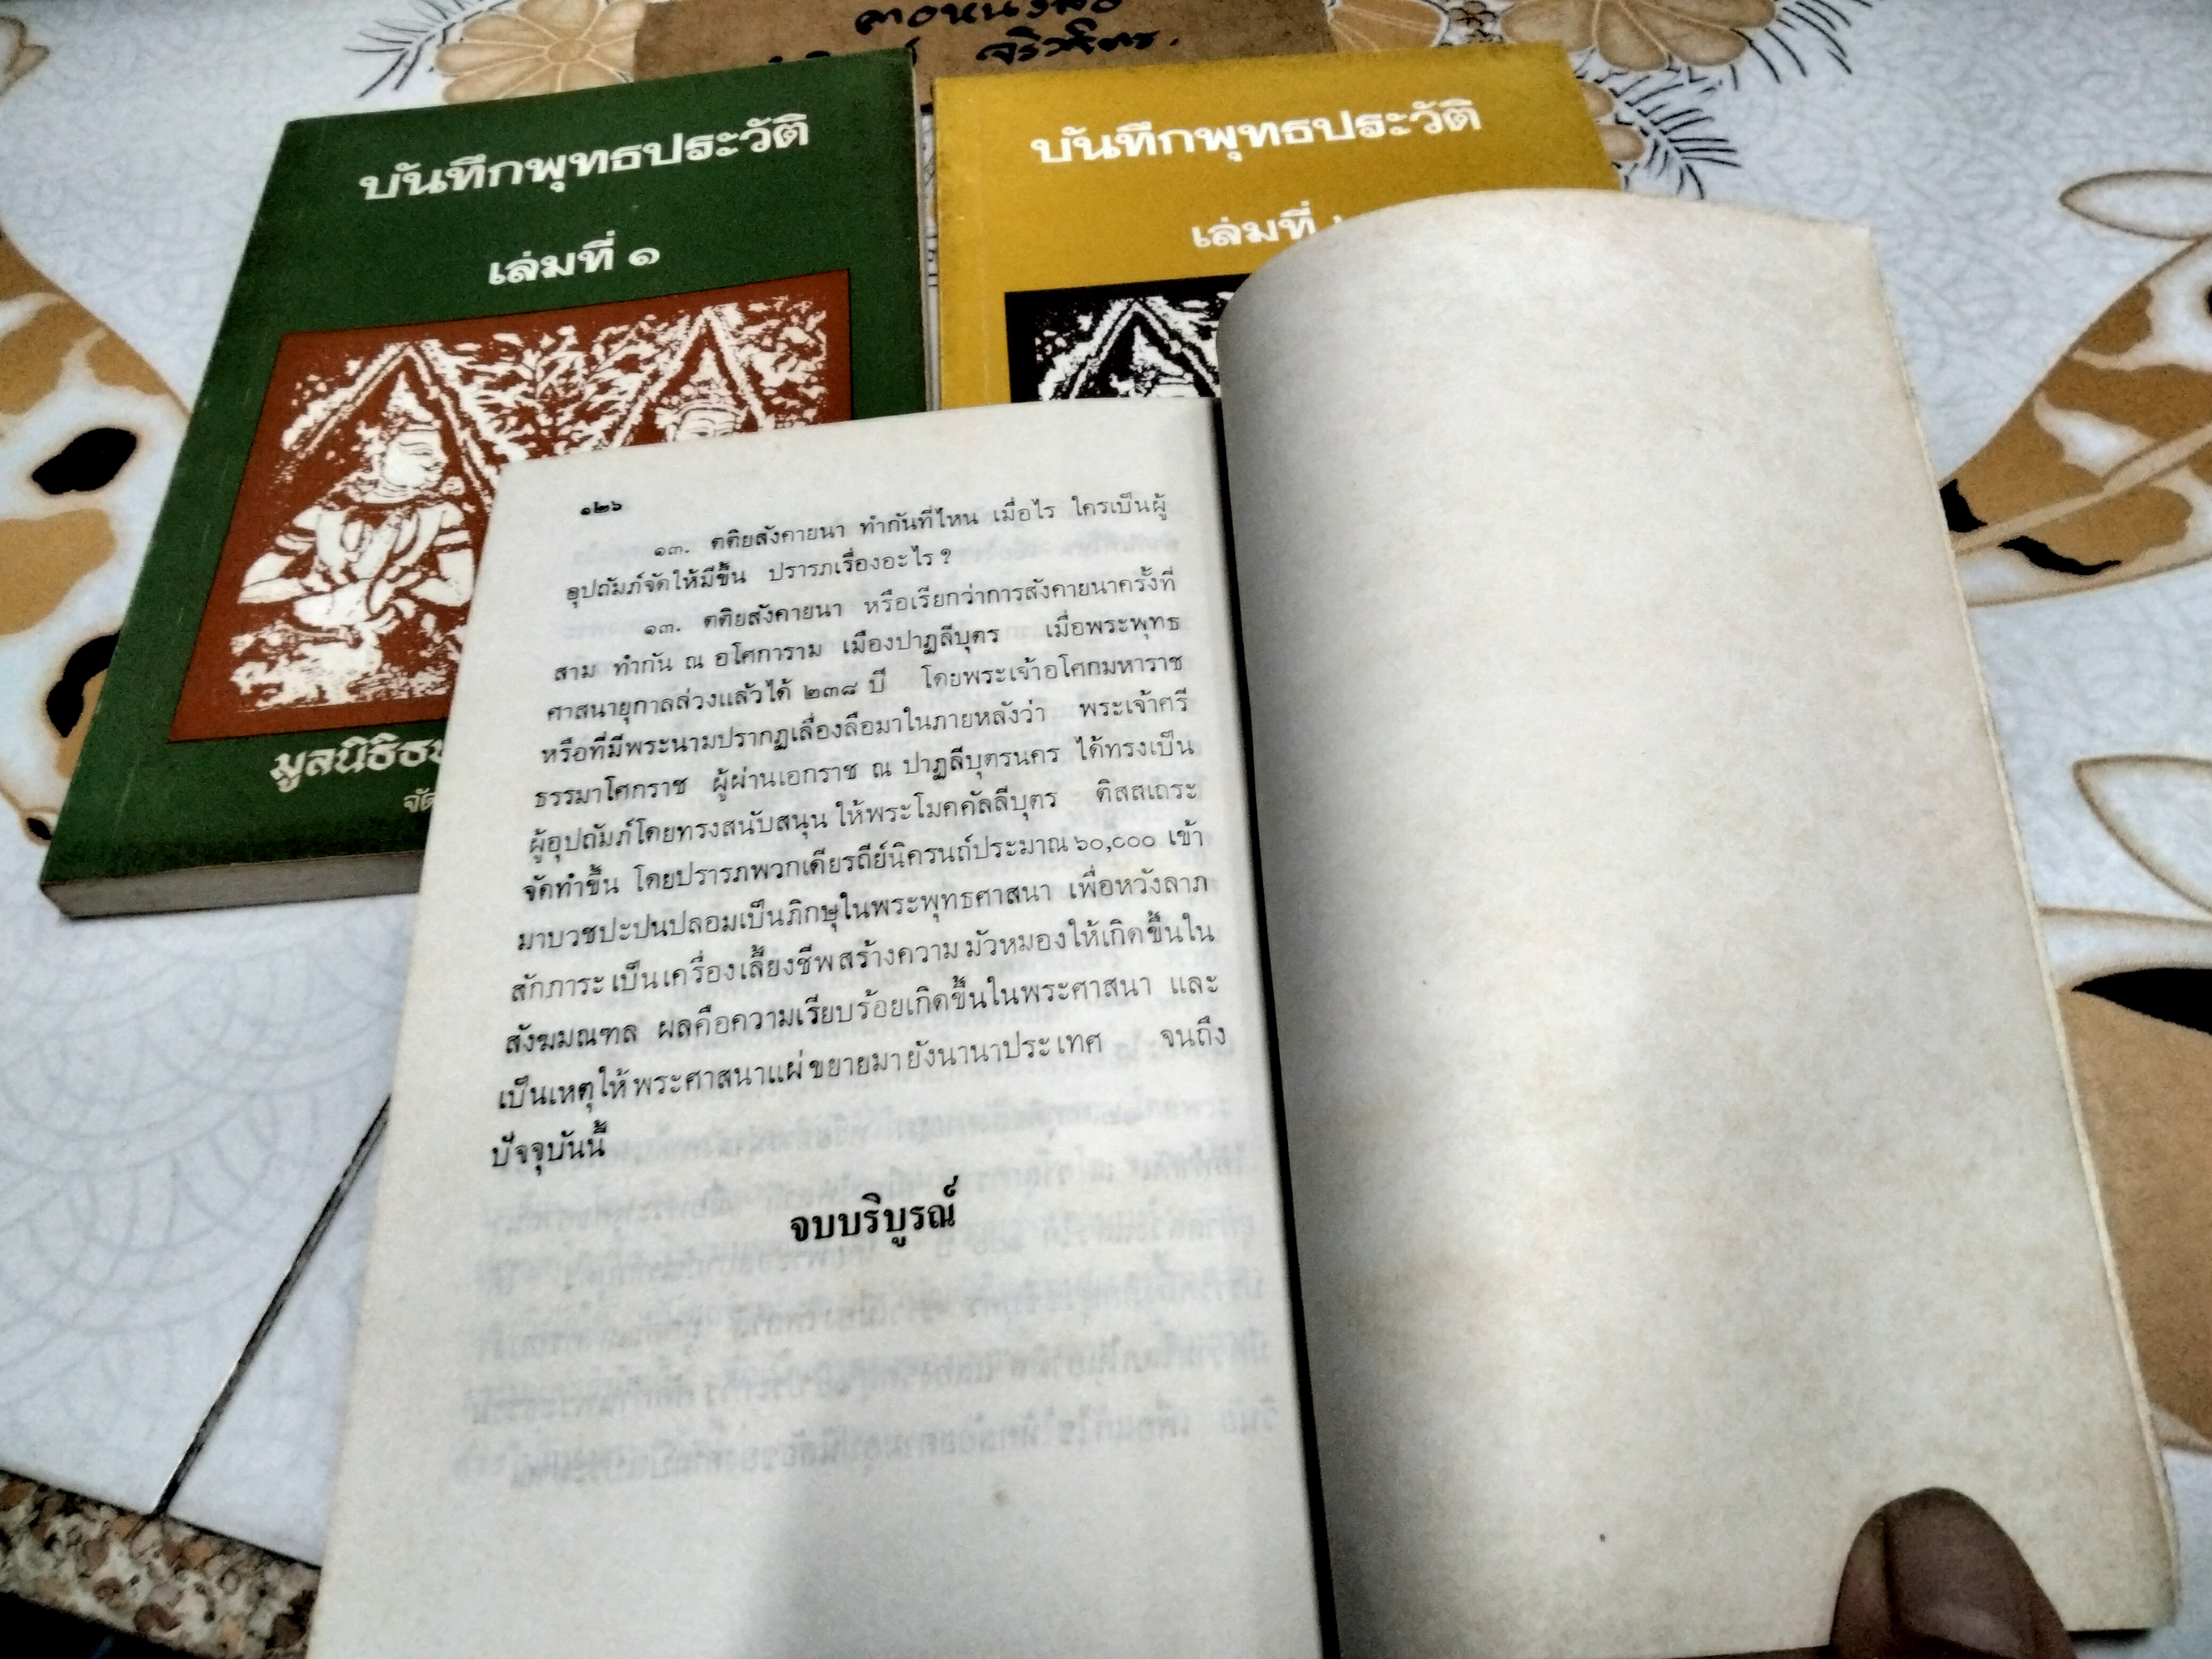 คอหนังสือ
จริวจิตร.
บันทึกพุทธประวัติ
เล่มที่ ๑
มูลนิธิธร
จัด
บันทึกพุทธประวัติ
เล่มที่
๑๒๖
๑๓. ตติยสังคายนา ทำกันที่ไหน เมื่อไร ใครเป็นผู้
อุปถัมภ์จัดให้มีขึ้น ปรารภเรื่องอะไร ?
๑๓. ตติยสังคายนา หรือเรียกว่าการสังคายนาครั้งที่
สาม ทำกัน ณ อโศการาม เมืองปาฏลีบุตร เมื่อพระพุทธ
ศาสนายุกาลล่วงแล้วได้ ๒๓๘ ปี โดยพระเจ้าอโศกมหาราช
หรือที่มีพระนามปรากฏเลื่องลือมาในภายหลังว่า พระเจ้าศรี
ธรรมาโศกราช ผู้ผ่านเอกราช ณ ปาฏลีบุตรนคร ได้ทรงเป็น
ผู้อุปถัมภ์โดยทรงสนับสนุนให้พระโมคคัลลีบุตร ติสสเถระ
จัดทำขึ้น โดยปรารภพวกเดียรถีย์นิครนถ์ประมาณ ๖๐,๐๐๐ เข้า
มาบวชปะปนปลอมเป็นภิกษุในพระพุทธศาสนา เพื่อหวังลาภ
สักภาระเป็นเครื่องเลี้ยงชีพสร้างความมัวหมองให้เกิดขึ้นใน
สังฆมณฑล ผลคือความเรียบร้อยเกิดขึ้นในพระศาสนา และ
เป็นเหตุให้พระศาสนาแผ่ขยายมายังนานาประเทศ จนถึง
ปัจจุบันนี้
จบบริบูรณ์